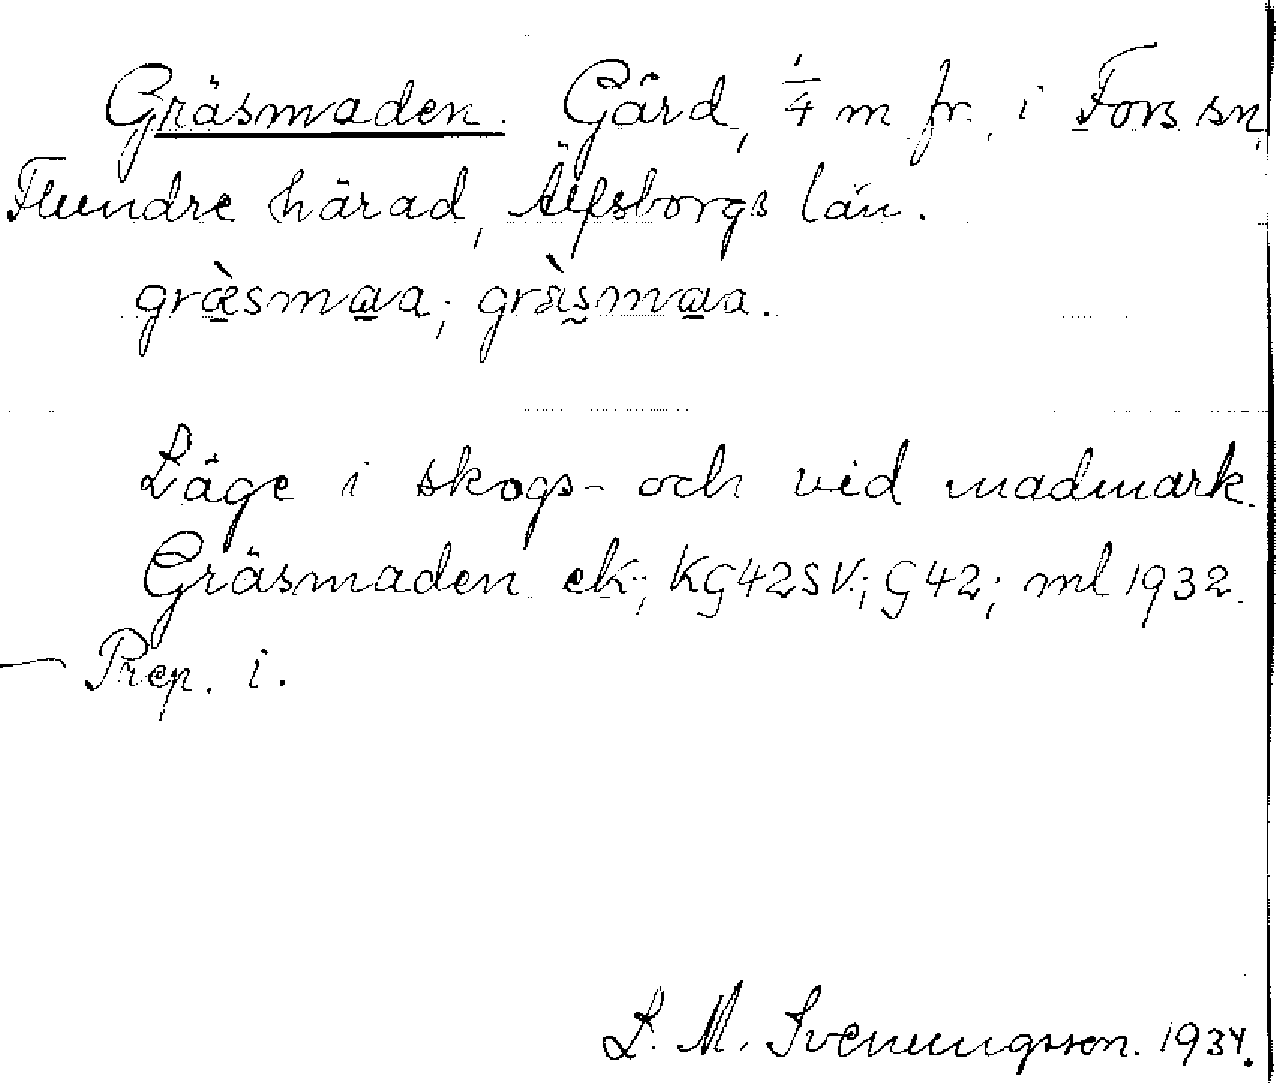 Gräsmaden. Gård, 1/4 m fr. i Fors sn,
Flundre härad, Älfsborgs län.
græ̀smaa; grä̀smaa.
Läge i skogs- och vid madmark.
Gräsmaden ek.; KG42SV.; G42; ml 1932.
— Prep. i.
L. M. Svenungsson. 1934.